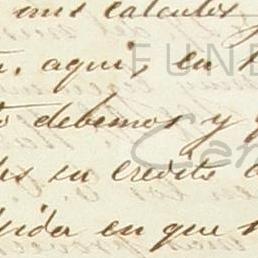 mis calculos
aqui, en
debemos y
su credito
en que
FUND
Cen